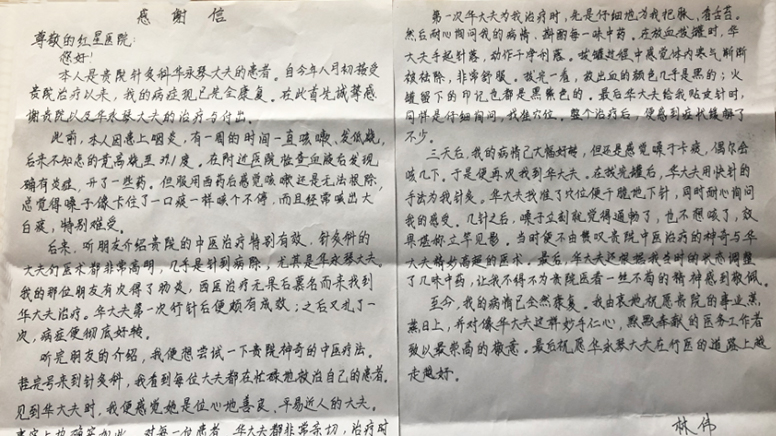 感谢信
尊敬的红星医院:
您好!
本人是贵院针灸科华永琴大夫的患者。自今年八月初接受
贵院治疗以来,我的病症现已完全康复。在此首先诚挚感
谢贵院以及华永琴大夫的治疗与付出。
此前,本人因患上咽炎,有一周的时间一直咳嗽、发低烧,
后来不知怎的竟高烧至39.1度。在附近医院检查血液后发现
确有炎症,开了一些药。但服用西药后感觉咳嗽还是无法根除,
总觉得嗓子像卡住了一口痰一样咳个不停,而且经常喊出大
白痰,特别难受。
后来,听朋友介绍贵院的中医治疗特别有效,针灸科的
大夫们医术都非常高明,几乎是针到病除,尤其是华永琴大夫。
我的那位朋友有次得了肺炎,西医治疗无果后慕名而来找到
华大夫治疗。华大夫第一次行针后便颇有成效;之后又扎了一
次,病症便彻底好转。
听完朋友的介绍,我便想尝试一下贵院神奇的中医疗法。
挂完号来到针灸科,我看到每位大夫都在忙碌地救治自己的患者。
见到华大夫时,我便感觉她是位心地善良、平易近人的大夫。
事实上也确实如此,对每一位患者,华大夫都非常亲切,治疗时
第一次华大夫为我治疗时,先是仔细地为我把脉、看舌苔。
然后耐心询问我的病情,斟酌每一味中药。在放血拔罐时,华
大夫手起针落,动作干净利落。拔罐过程中感觉体内寒气渐渐
被祛除,非常舒服。拔完一看,放出血的颜色几乎是黑的;火
罐留下的印记也都是黑紫色的。最后华大夫给我贴皮针时,
同样是仔细询问,找准穴位。整个治疗后,便感到症状缓解了
不少。
三天后,我的病情已大幅好转,但还是感觉嗓子卡痰,偶尔会
咳几下。于是便再次找到华大夫。在拔完罐后,华大夫用快针的
手法为我针灸。华大夫找准了穴位便干脆地下针,同时耐心询问
我的感受。几针之后,嗓子立刻就觉得通畅了,也不想咳了,效
果堪称立竿见影。当时便不由赞叹贵院中医治疗的神奇与华
大夫精妙高超的医术。最后,华大夫还根据我当时的状态调整
了几味中药,让我不得不为贵院医者一丝不苟的精神感到敬佩。
至今,我的病情已全然康复。我由衷地祝愿贵院的事业蒸
蒸日上,并对像华大夫这样妙手仁心,默默奉献的医务工作者
致以最崇高的敬意。最后祝愿华永琴大夫在行医的道路上越
走越好。
林伟